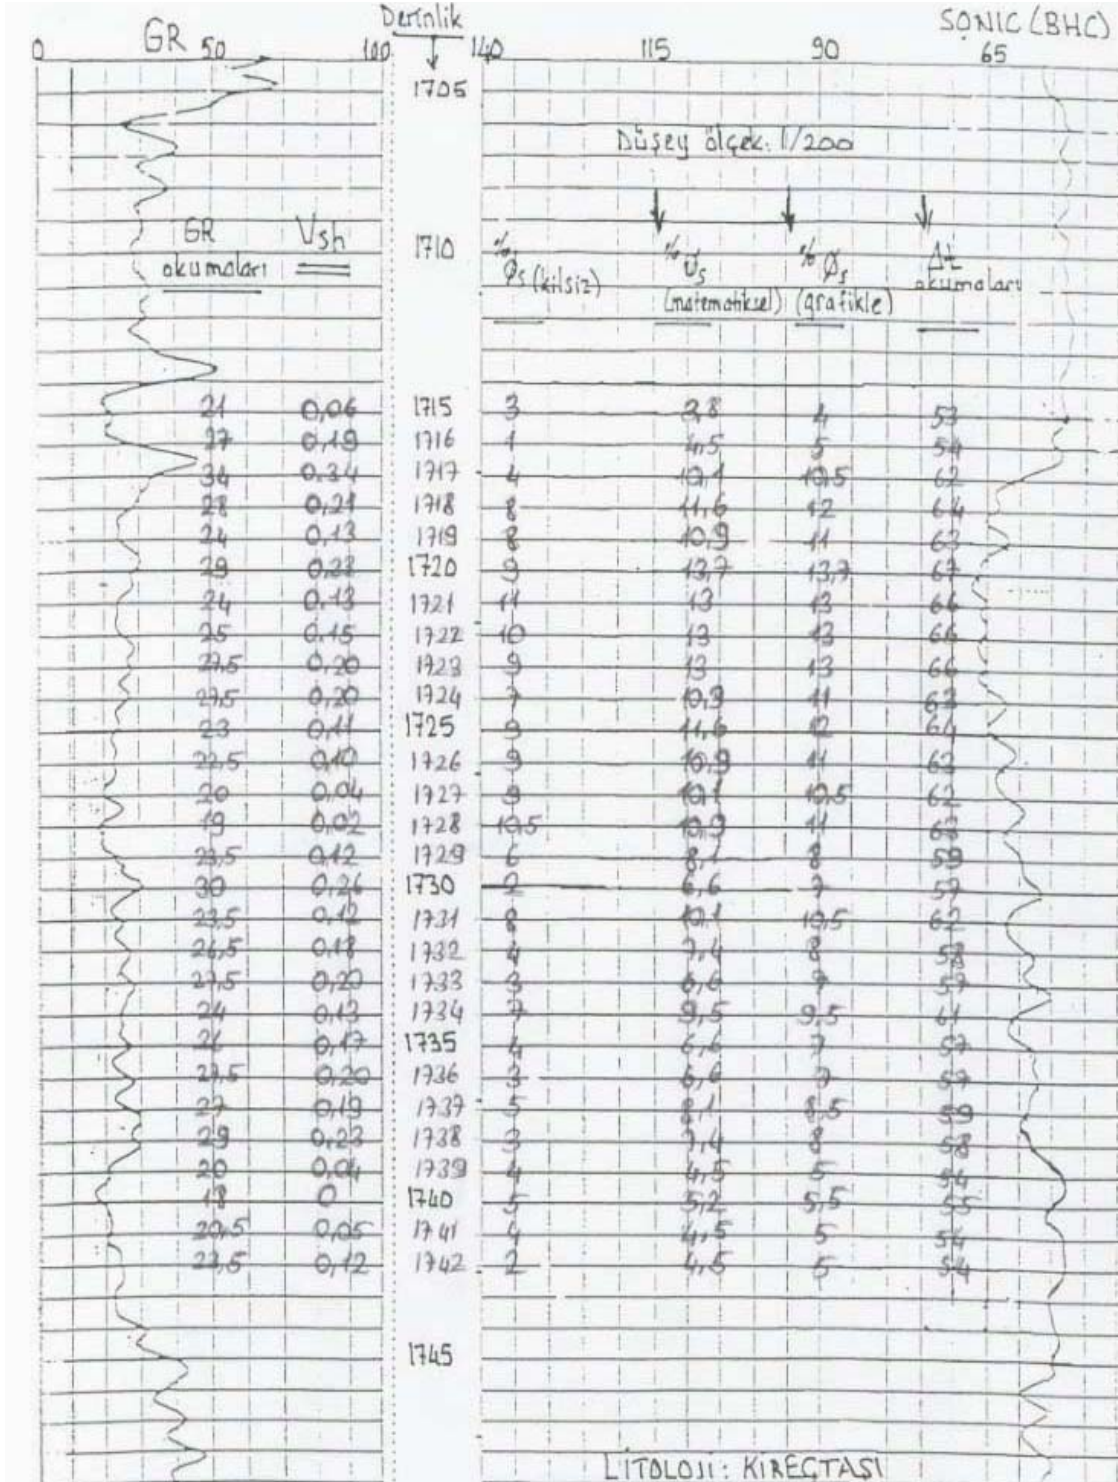 GR Derinlik SONIC (BHC)
0 50 100 140 115 90 65
1705
Düşey ölçek: 1/200
GR okumaları Vsh 1710 % Øs (kilsiz) % Øs (matematiksel) % Øs (grafikle) Δt okumaları
21 0,06 1715 3 2,8 4 53
27 0,19 1716 1 4,5 5 54
34 0.34 1717 4 10,1 10,5 62
28 0,21 1718 8 11,6 12 64
24 0,13 1719 8 10,9 11 63
29 0,23 1720 9 13,7 13,7 67
24 0.13 1721 11 13 13 66
25 0.15 1722 10 13 13 66
27,5 0,20 1723 9 13 13 66
27,5 0,20 1724 7 10,9 11 63
23 0,11 1725 9 11,6 12 64
22,5 0,10 1726 9 10,9 11 63
20 0,04 1727 9 10,1 10,5 62
19 0,02 1728 10,5 10,9 11 63
23,5 0,12 1729 6 8,1 8 59
30 0,26 1730 2 6,6 7 57
23,5 0,12 1731 8 10,1 10,5 62
26,5 0,18 1732 4 7,4 8 58
27,5 0,20 1733 3 6,6 7 57
24 0,13 1734 7 9,5 9,5 61
26 0,17 1735 4 6,6 7 57
27,5 0,20 1736 3 6,6 7 57
27 0,19 1737 5 8,1 8,5 59
29 0,23 1738 3 7,4 8 58
20 0,04 1739 4 4,5 5 54
18 0 1740 5 5,2 5,5 55
20,5 0,05 1741 4 4,5 5 54
23,5 0,12 1742 2 4,5 5 54
1745
LİTOLOJİ: KİREÇTAŞI